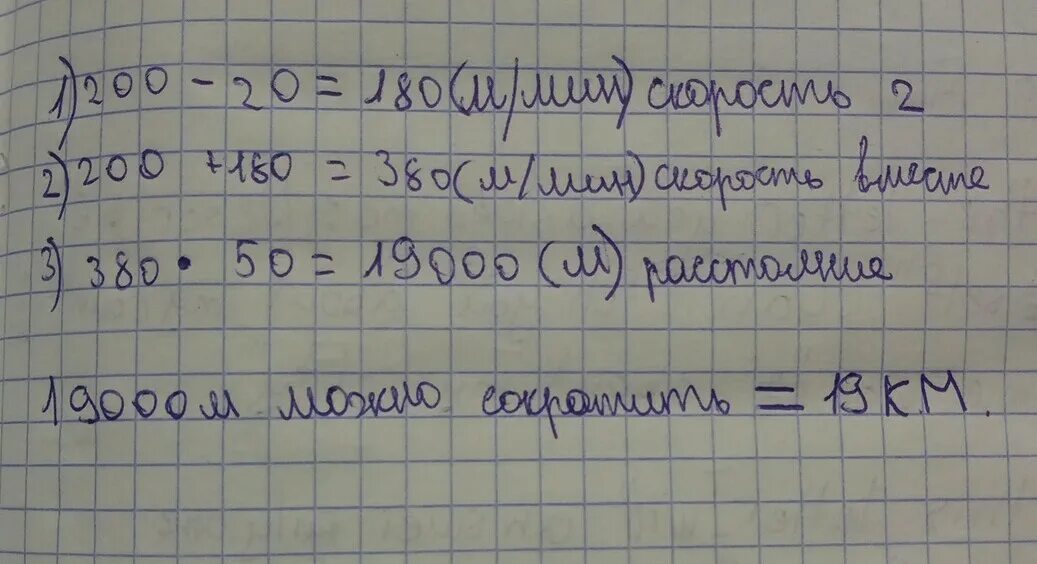 1) 200 - 20 = 180 (м/мин) скорость 2
2) 200 + 180 = 380 (м/мин) скорость вместе
3) 380 · 50 = 19000 (м) расстояние
19000 м можно сократить = 19 км.